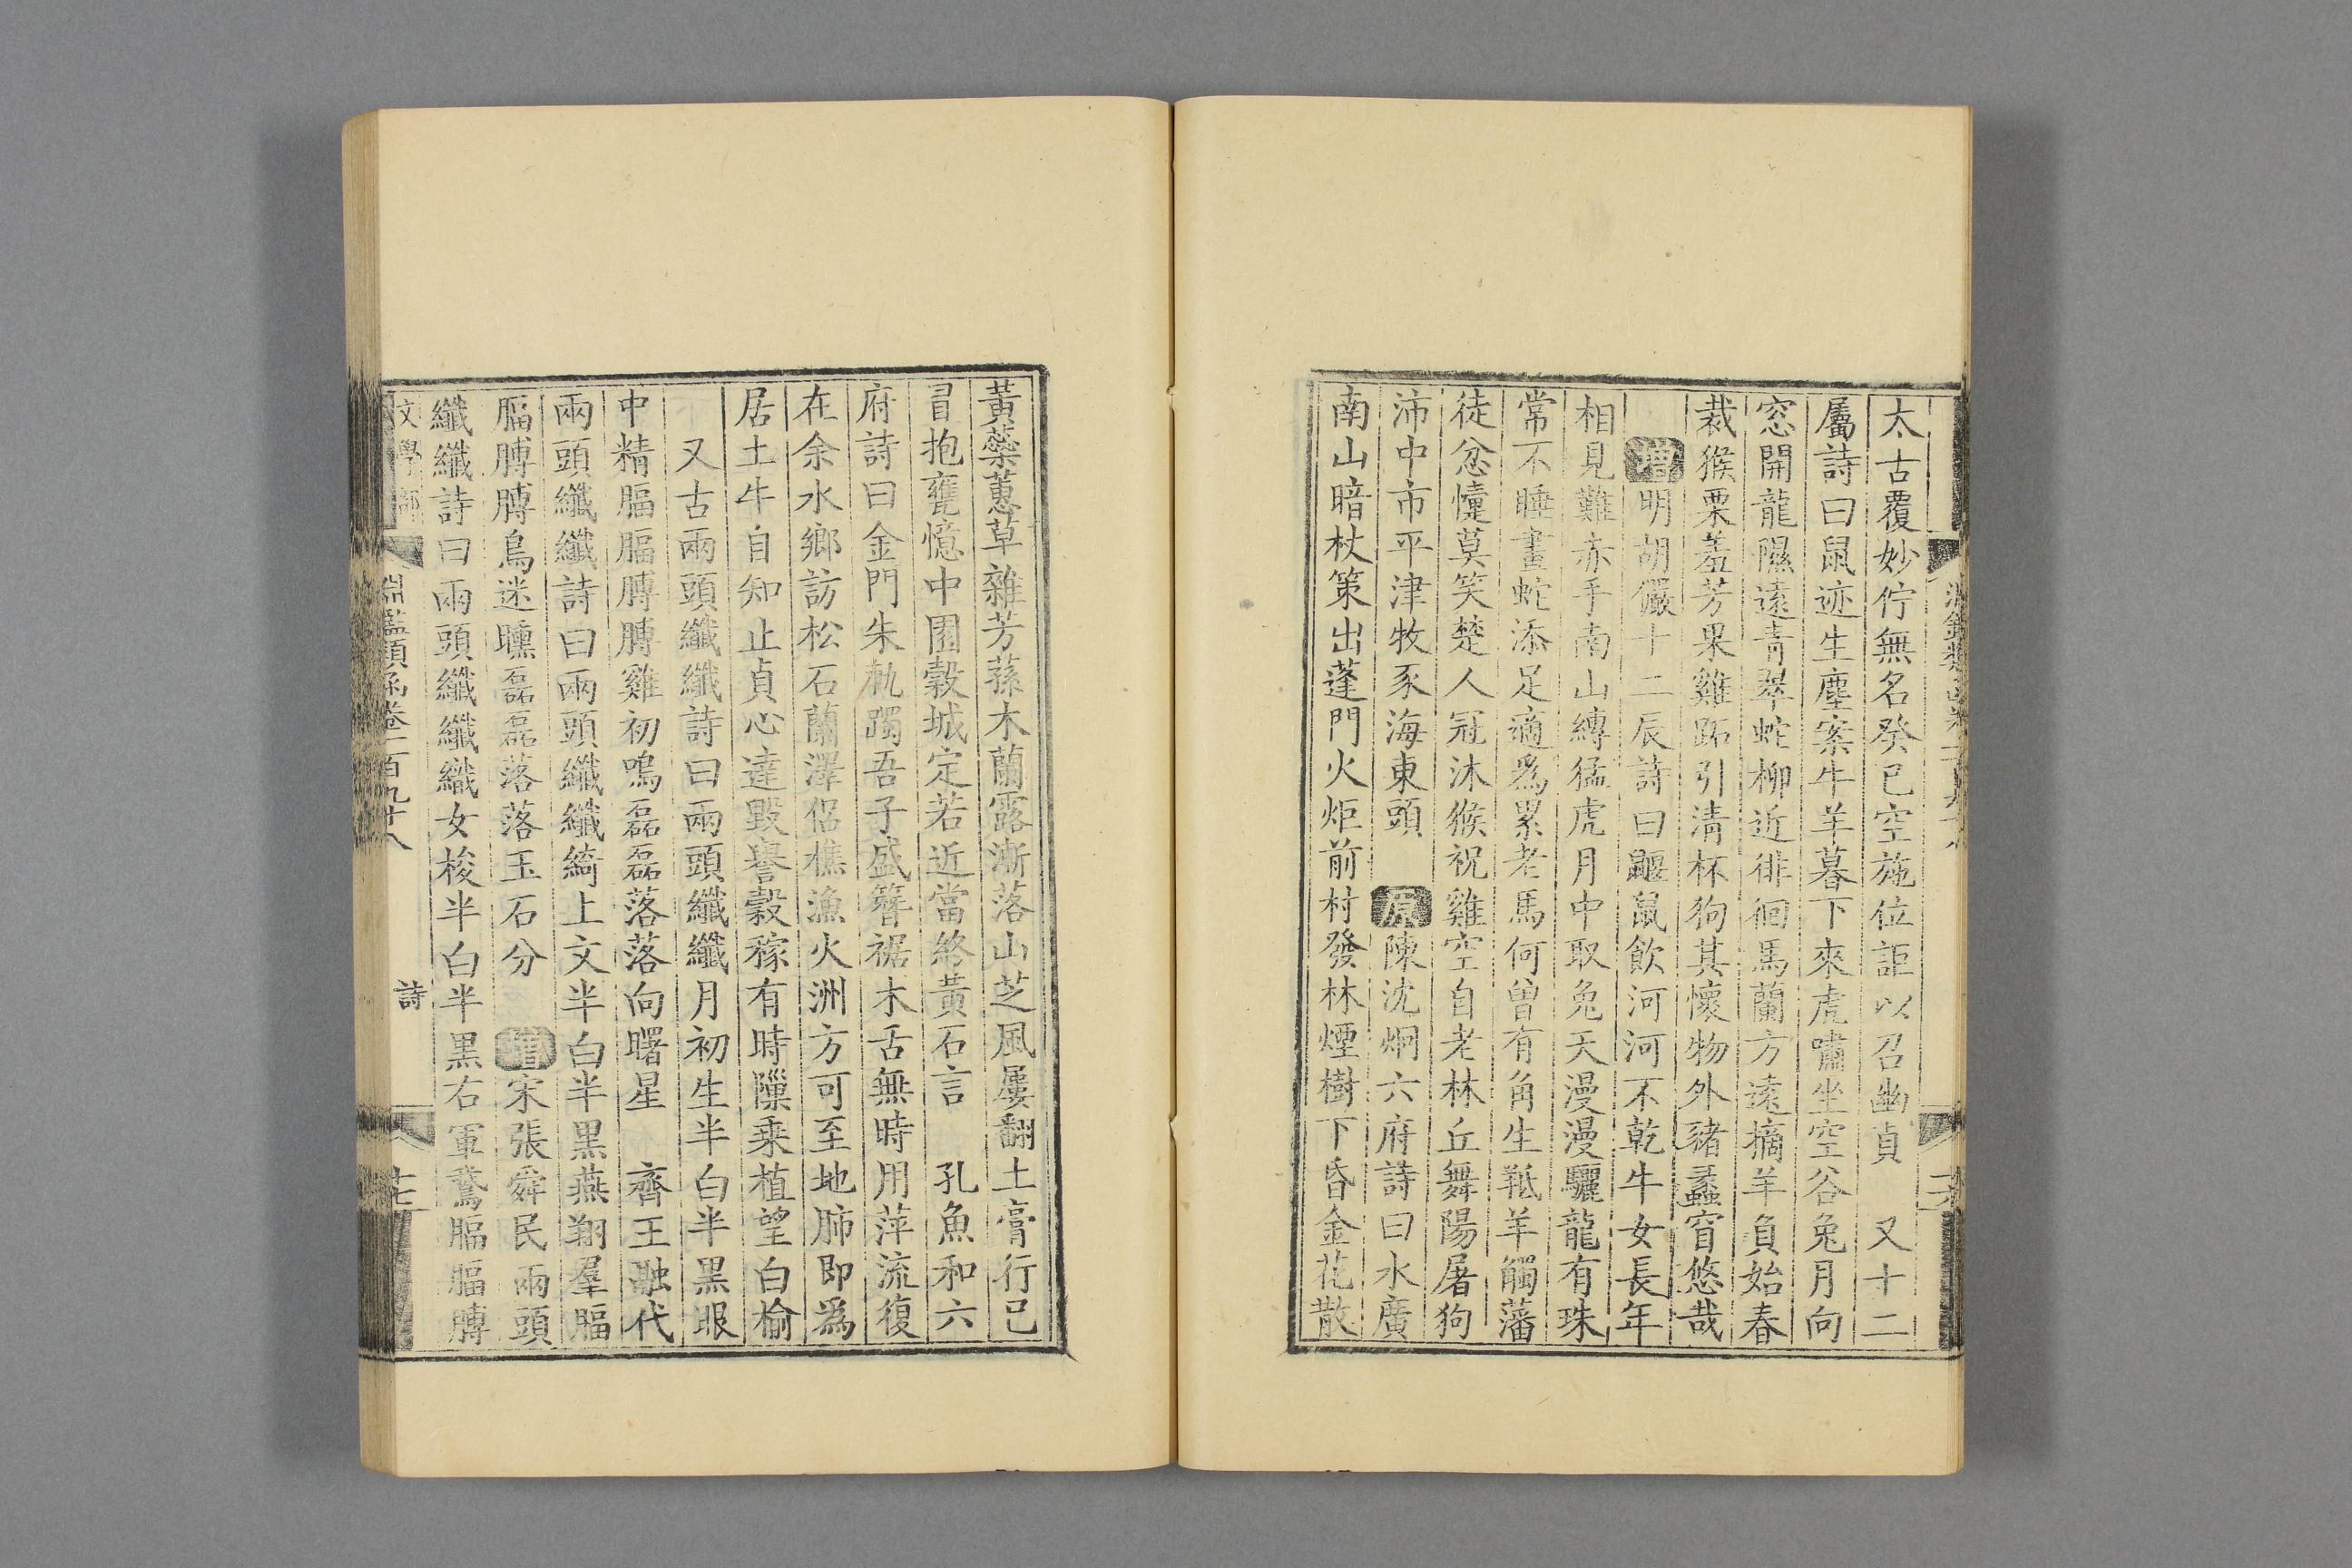 太古覆妙佇無名癸巳空施位詎以召幽貞　又十二
屬詩曰鼠迹生塵案牛羊暮下來虎嘯坐空谷兔月向
窓開龍隰遠青翠蛇柳近徘徊馬蘭方遠摘羊負始春
栽猴栗羞芳果雞跖引清杯狗其懷物外豬蠡窅悠哉
增明胡儼十二辰詩曰鼴鼠飲河河不乾牛女長年
相見難赤手南山縛猛虎月中取兔天漫漫驪龍有珠
常不睡畫蛇添足適爲累老馬何曾有角生羝羊觸藩
徒忿懥莫笑楚人冠沐猴祝雞空自老林丘舞陽屠狗
沛中市平津牧豕海東頭　原陳沈炯六府詩曰水廣
南山暗杖策出蓬門火炬前村發林煙樹下昏金花散
黃蘂蕙草雜芳蓀木蘭露漸落山芝風屢翻土膏行已
冒抱甕憶中園穀城定若近當終黃石言　孔魚和六
府詩曰金門朱軌躅吾子盛簪裾木舌無時用萍流復
在余水鄉訪松石蘭澤侶樵漁火洲方可至地肺即爲
居土牛自知止貞心達毀譽穀稼有時隟乘植望白榆
又古兩頭纖纖詩曰兩頭纖纖月初生半白半黑眼
中精腷腷膊膊雞初鳴磊磊落落向曙星　齊王融代
兩頭纖纖詩曰兩頭纖纖綺上文半白半黑燕翔羣腷
腷膊膊鳥迷曛磊磊落落玉石分　增宋張舜民兩頭
纖纖詩曰兩頭纖纖織女梭半白半黑右軍鵞腷腷膊
文學部　淵鑑類函卷一百九十八　詩　十七